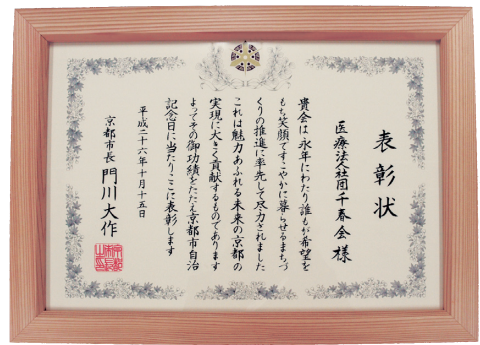 表彰状
医療法人社団千春会様
貴会は永年にわたり誰もが希望を
もち笑顔ですこやかに暮らせるまちづ
くりの推進に率先して尽力されました
これは魅力あふれる未来の京都の
実現に大きく貢献するものであります
よってその御功績をたたえ京都市自治
記念日に当たりここに表彰します
平成二十六年十月十五日
京都市長 門川大作